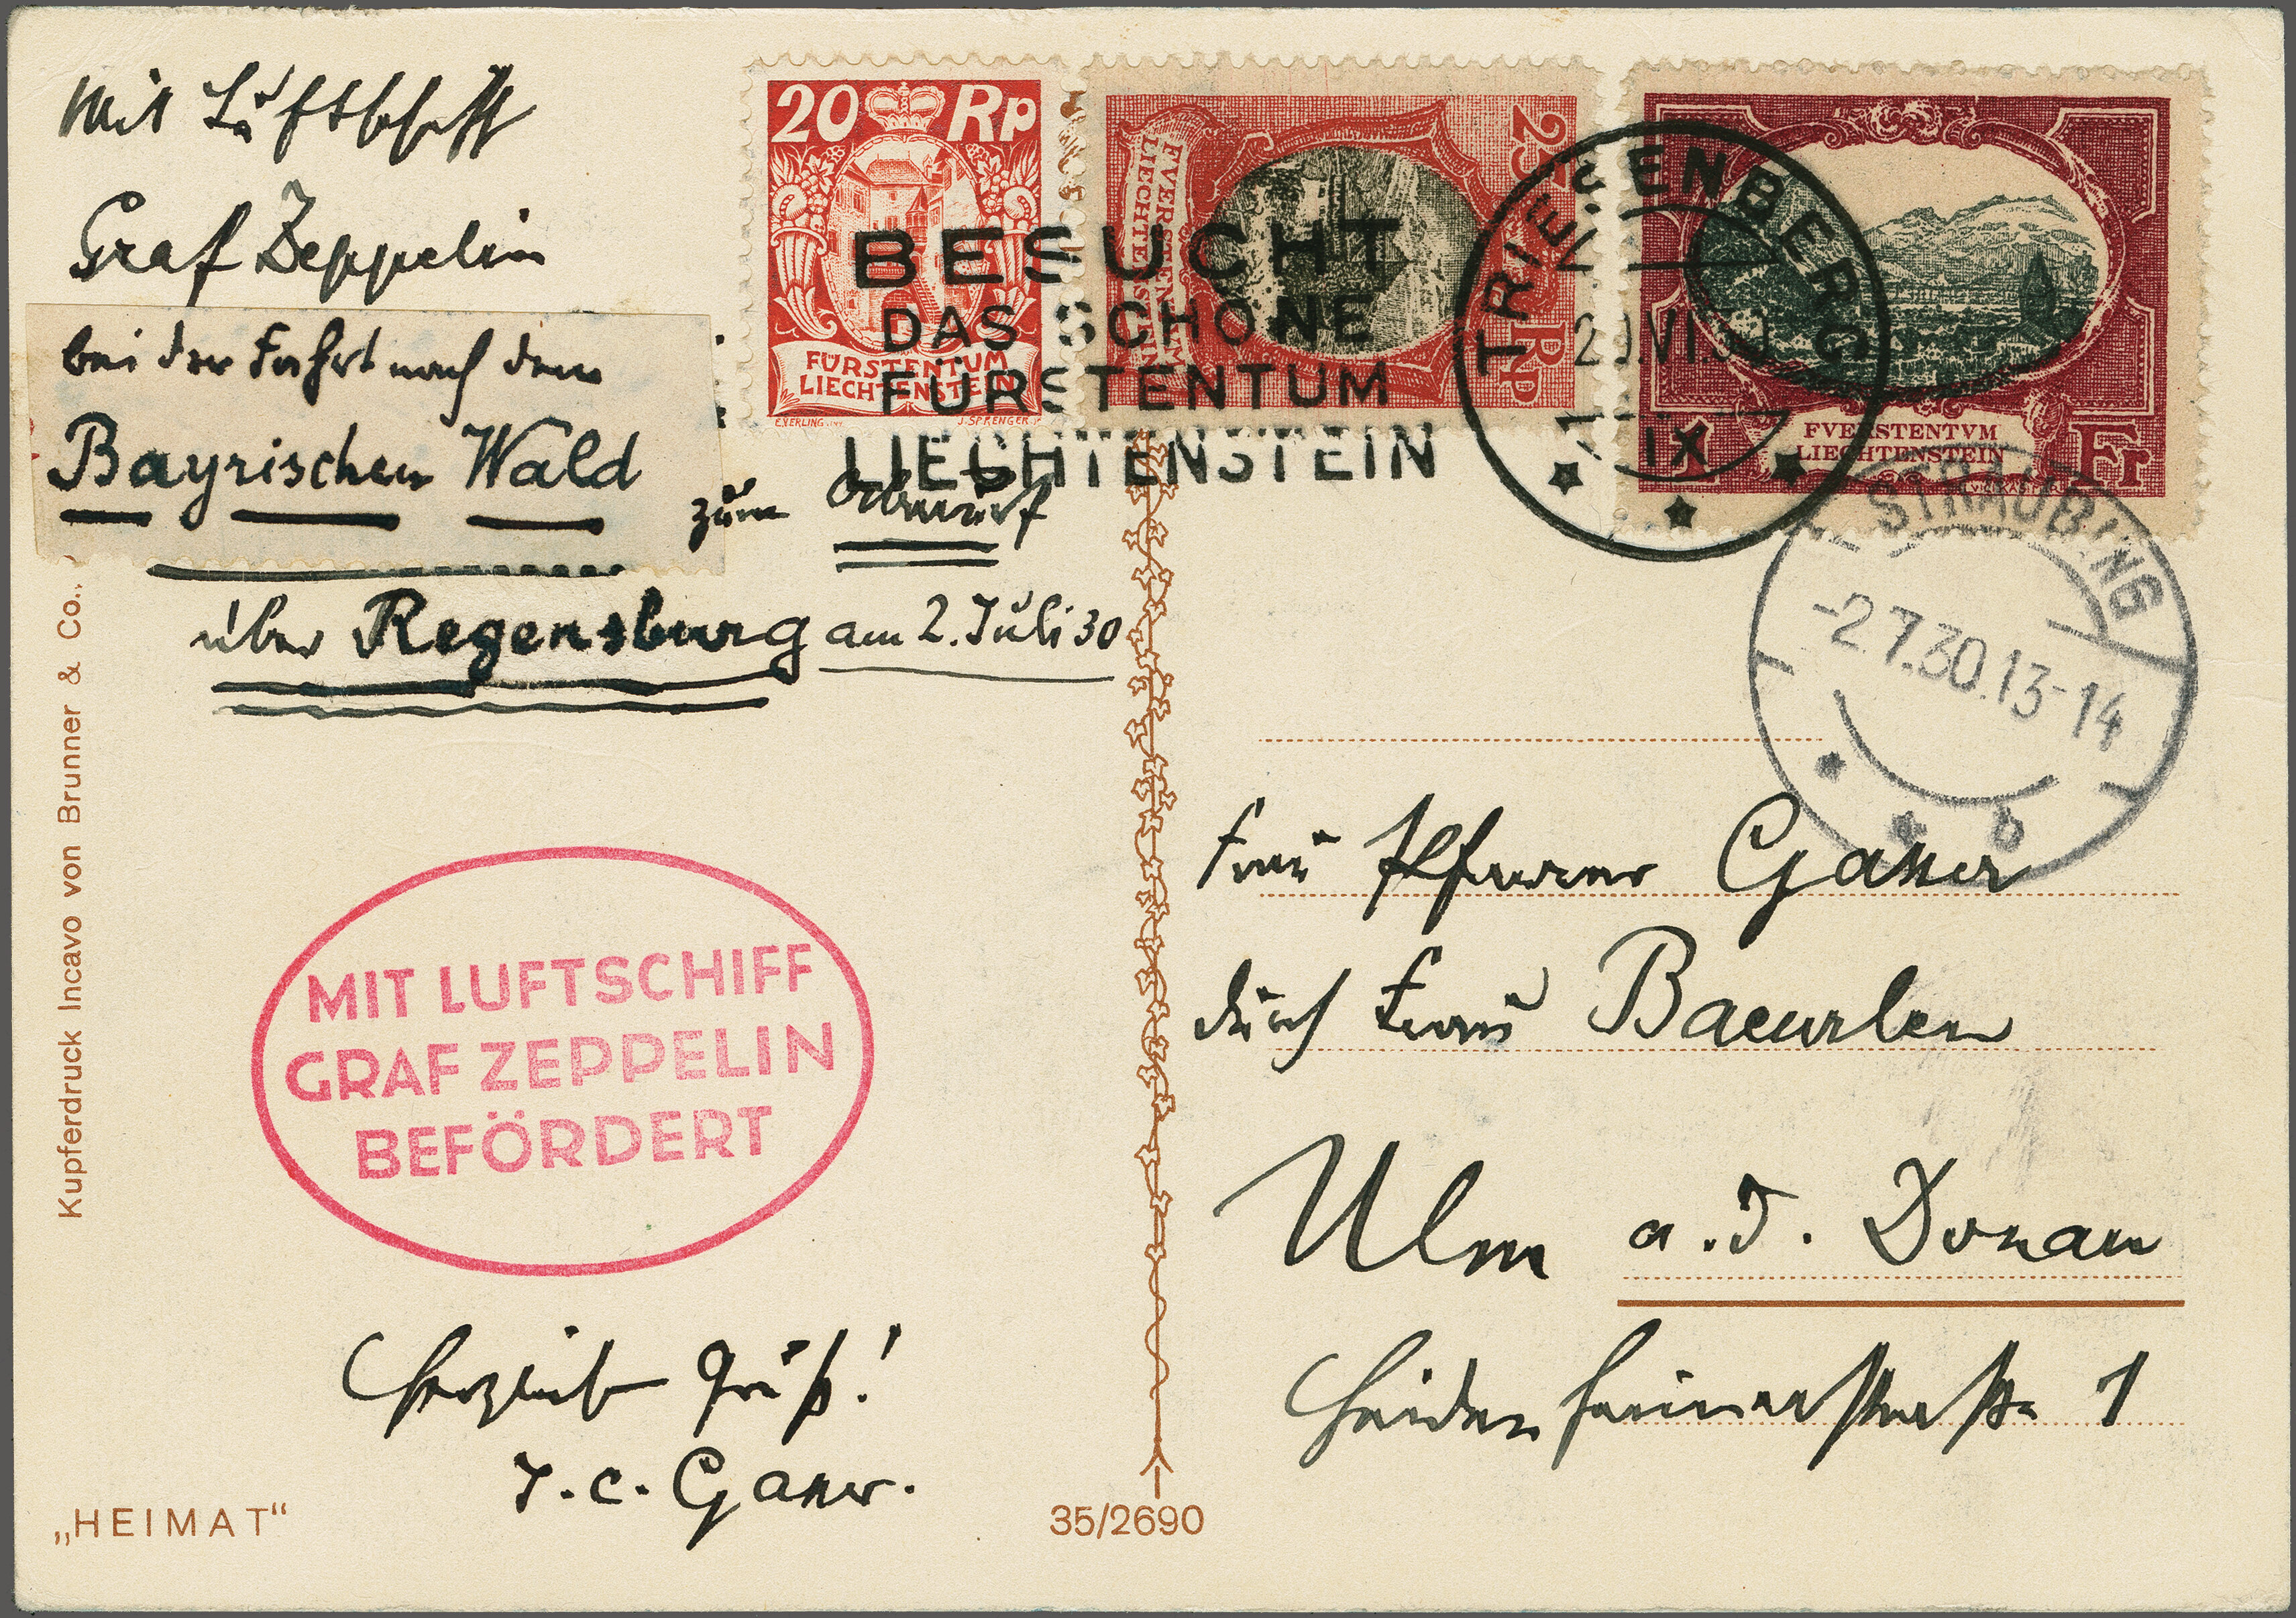 Mit Luftschiff
Graf Zeppelin
bei der Fahrt nach dem
Bayrischen Wald
zum Abwurf
über Regensburg am 2. Juli 30
20 Rp
FÜRSTENTUM
LIECHTENSTEIN
E.VERLING.INV.
J.SPRENGER.
25 Rp
FVERSTENTVM
LIECHTENSTEIN
1 Fr
FVERSTENTVM
LIECHTENSTEIN
BESUCHT
DAS SCHÖNE
FÜRSTENTUM
LIECHTENSTEIN
TRIESENBERG
VI.30
IX
STRAUBING
-2.7.30.13-14
b
MIT LUFTSCHIFF
GRAF ZEPPELIN
BEFÖRDERT
Herzlich Gruß!
Frau Pfarrer Ganser
durch Frau Baeurlen
Ulm a. d. Donau
Heidenheimerstrasse 1
Kupferdruck Incavo von Brunner & Co.,
„HEIMAT“
35/2690